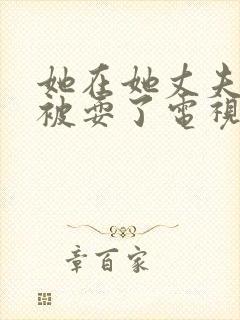 她在她丈夫
被耍了電視
章百家